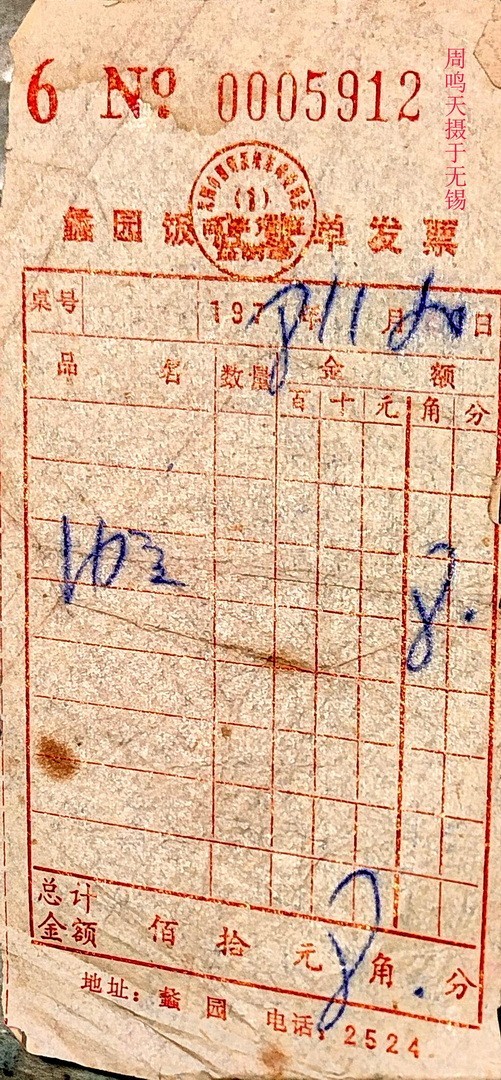 6 No 0005912
周鸣天摄于无锡
(1)
蠡园饭 单发票
桌号 197 年 11 月 日
品名 数量 金额
百 十 元 角 分
8.
总计金额 佰 拾 元 8 角 . 分
地址：蠡园 电话：2524